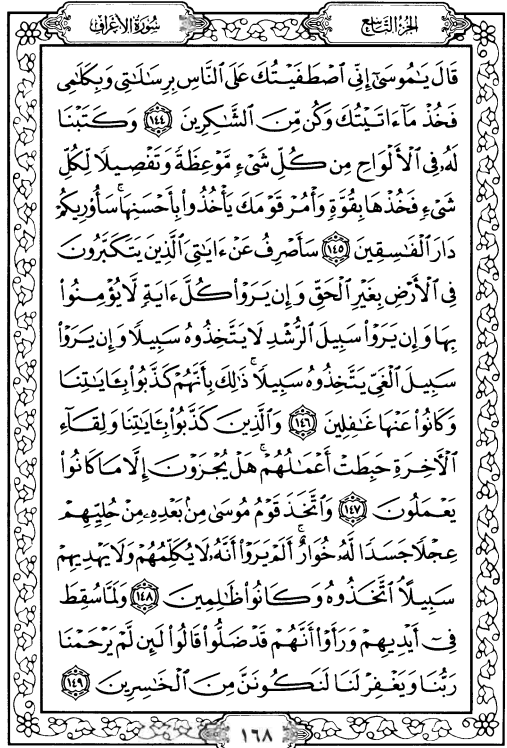 الجزء التاسع
سورة الأعراف
قَالَ يَـٰمُوسَىٰٓ إِنِّى ٱصْطَفَيْتُكَ عَلَى ٱلنَّاسِ بِرِسَـٰلَـٰتِى وَبِكَلَـٰمِى
فَخُذْ مَآ ءَاتَيْتُكَ وَكُن مِّنَ ٱلشَّـٰكِرِينَ ١٤٤ وَكَتَبْنَا
لَهُۥ فِى ٱلْأَلْوَاحِ مِن كُلِّ شَىْءٍ مَّوْعِظَةً وَتَفْصِيلًا لِّكُلِّ
شَىْءٍ فَخُذْهَا بِقُوَّةٍ وَأْمُرْ قَوْمَكَ يَأْخُذُوا۟ بِأَحْسَنِهَا ۚ سَأُو۟رِيكُمْ
دَارَ ٱلْفَـٰسِقِينَ ١٤٥ سَأَصْرِفُ عَنْ ءَايَـٰتِىَ ٱلَّذِينَ يَتَكَبَّرُونَ
فِى ٱلْأَرْضِ بِغَيْرِ ٱلْحَقِّ وَإِن يَرَوْا۟ كُلَّ ءَايَةٍ لَّا يُؤْمِنُوا۟
بِهَا وَإِن يَرَوْا۟ سَبِيلَ ٱلرُّشْدِ لَا يَتَّخِذُوهُ سَبِيلًا وَإِن يَرَوْا۟
سَبِيلَ ٱلْغَىِّ يَتَّخِذُوهُ سَبِيلًا ۚ ذَٰلِكَ بِأَنَّهُمْ كَذَّبُوا۟ بِـَٔايَـٰتِنَا
وَكَانُوا۟ عَنْهَا غَـٰفِلِينَ ١٤٦ وَٱلَّذِينَ كَذَّبُوا۟ بِـَٔايَـٰتِنَا وَلِقَآءِ
ٱلْـَٔاخِرَةِ حَبِطَتْ أَعْمَـٰلُهُمْ ۚ هَلْ يُجْزَوْنَ إِلَّا مَا كَانُوا۟
يَعْمَلُونَ ١٤٧ وَٱتَّخَذَ قَوْمُ مُوسَىٰ مِنۢ بَعْدِهِۦ مِنْ حُلِيِّهِمْ
عِجْلًا جَسَدًا لَّهُۥ خُوَارٌ ۚ أَلَمْ يَرَوْا۟ أَنَّهُۥ لَا يُكَلِّمُهُمْ وَلَا يَهْدِيهِمْ
سَبِيلًا ۘ ٱتَّخَذُوهُ وَكَانُوا۟ ظَـٰلِمِينَ ١٤٨ وَلَمَّا سُقِطَ
فِىٓ أَيْدِيهِمْ وَرَأَوْا۟ أَنَّهُمْ قَدْ ضَلُّوا۟ قَالُوا۟ لَئِن لَّمْ يَرْحَمْنَا
رَبُّنَا وَيَغْفِرْ لَنَا لَنَكُونَنَّ مِنَ ٱلْخَـٰسِرِينَ ١٤٩
١٦٨